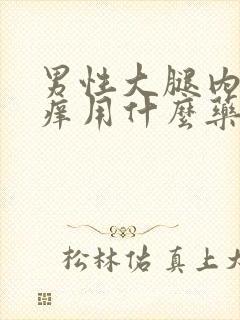 男性大腿内
痒用什麼藥
松林佑真上大